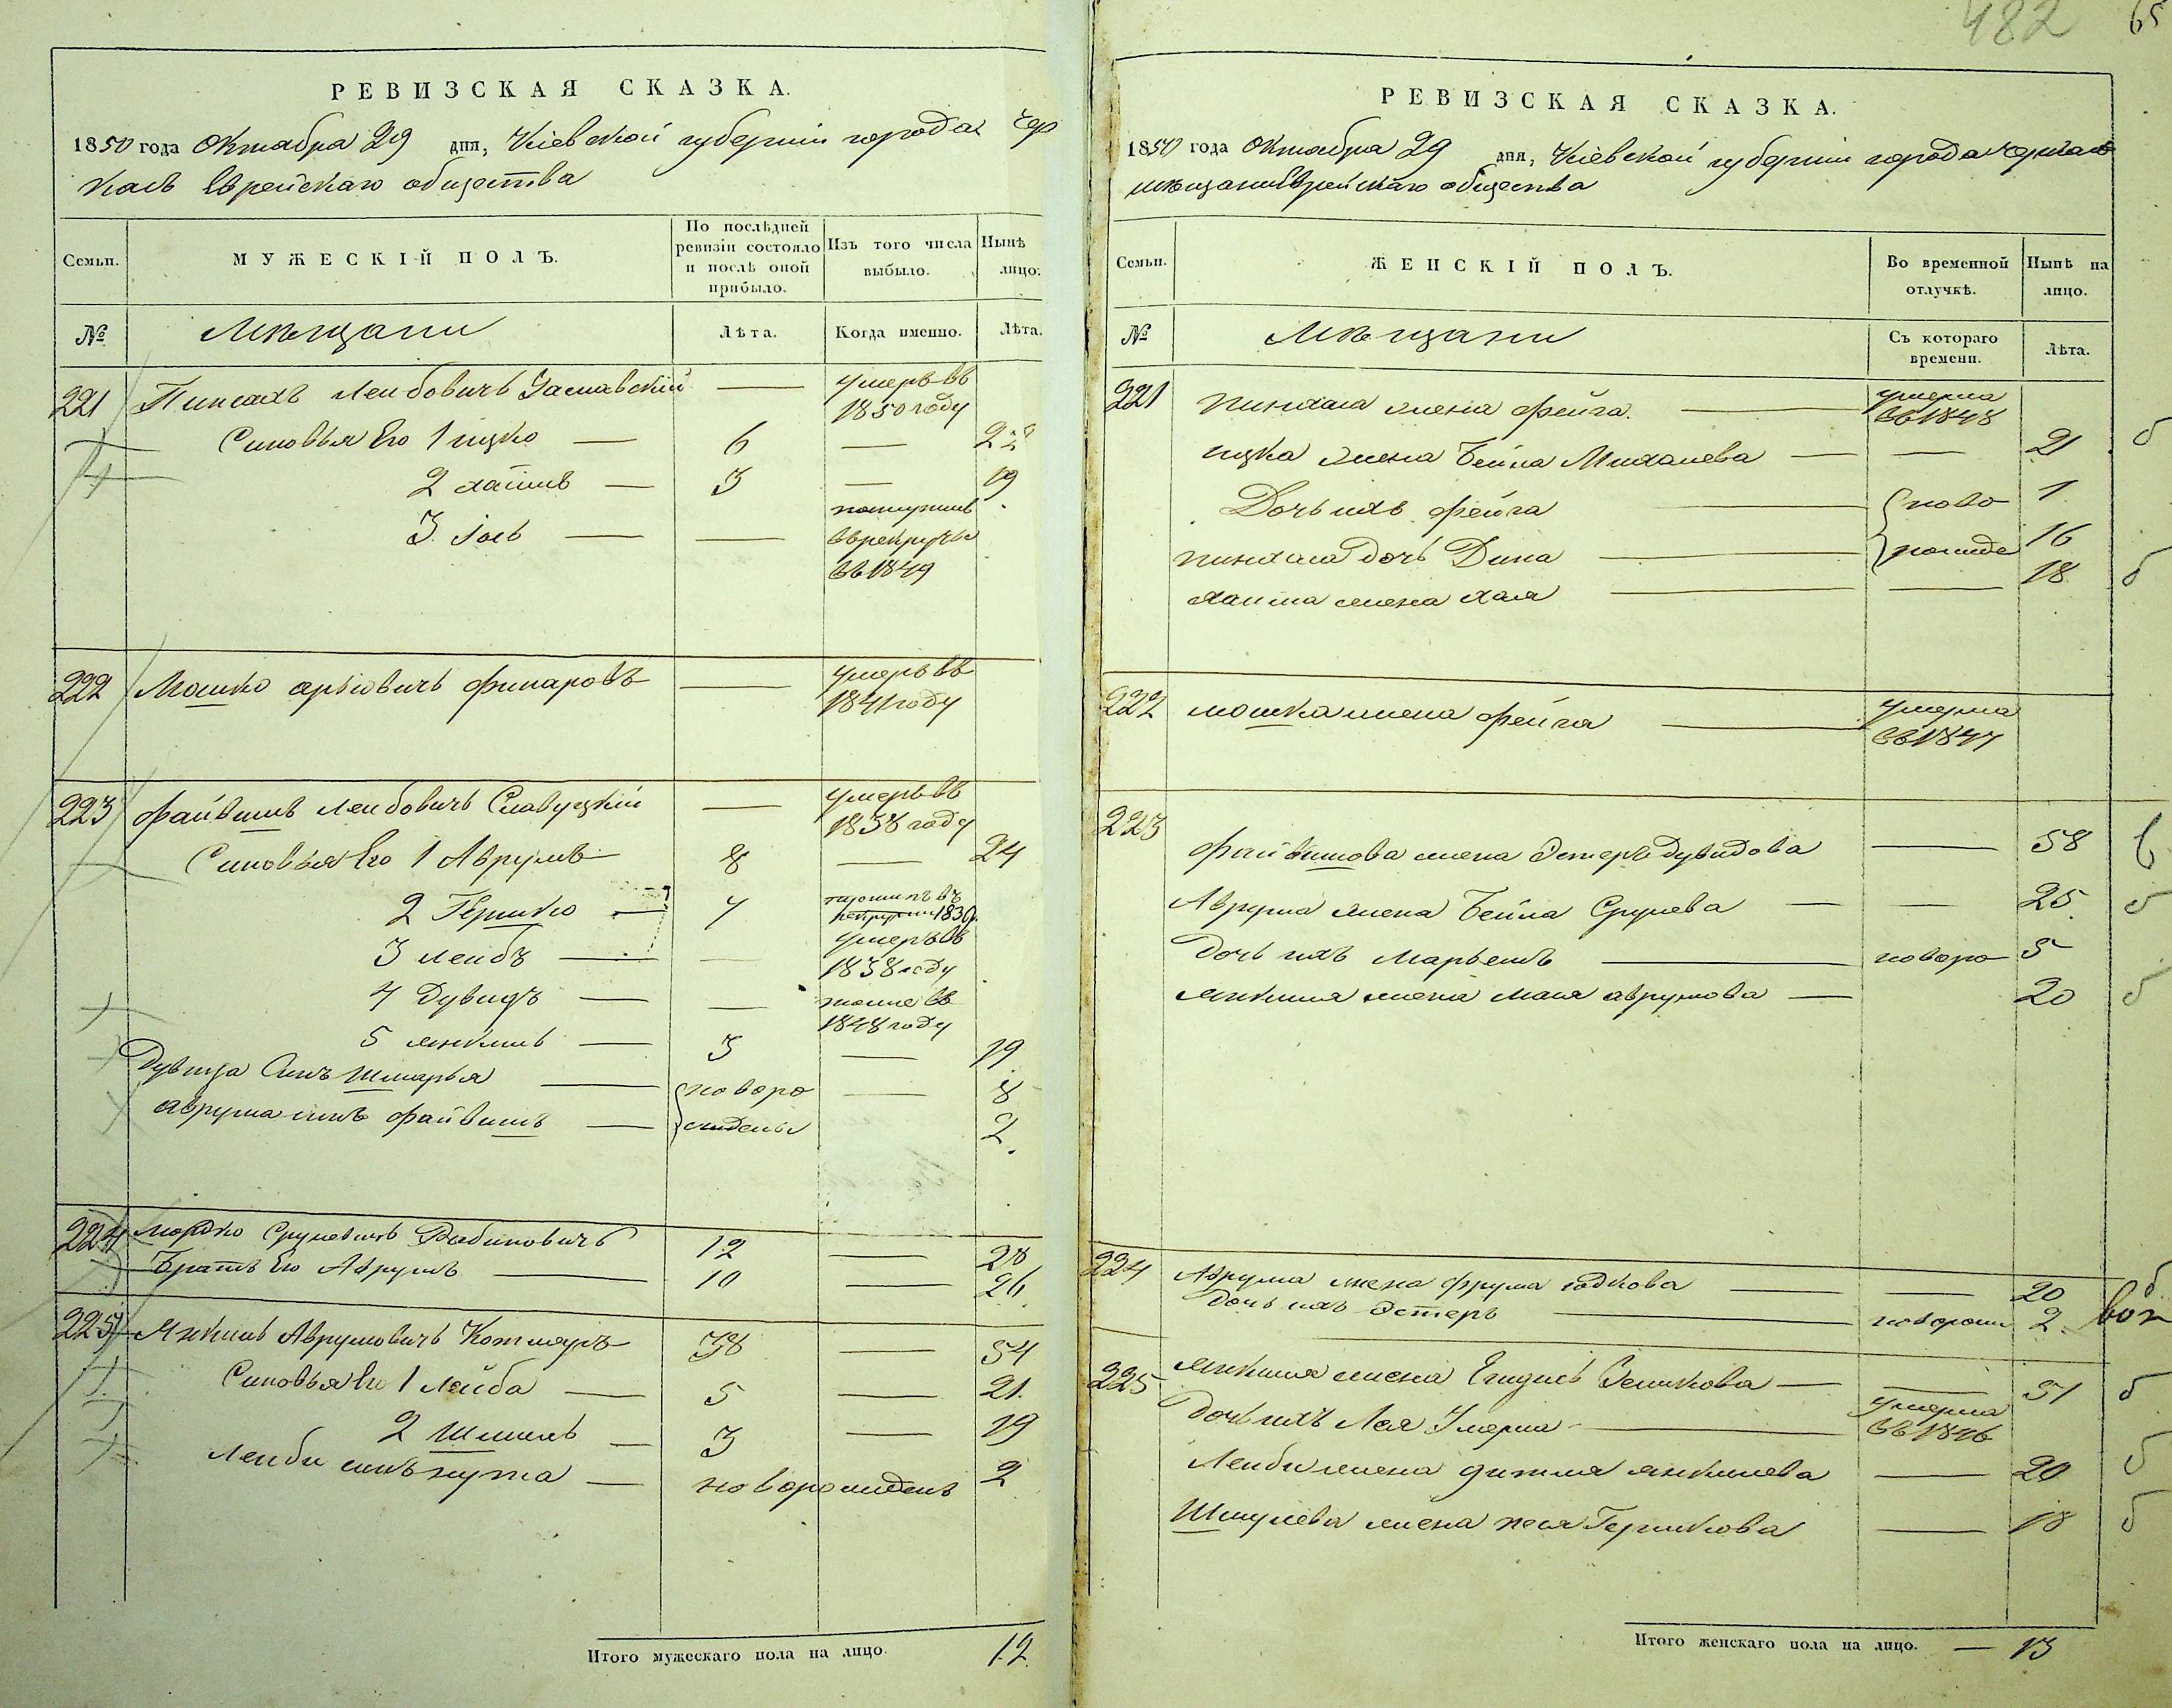 482 65
РЕВИЗСКАЯ СКАЗКА.
1850 года Октабра 29 дня, Кіевской губерніи города Чер
касъ Еврейскаго общества
Семьи. МУЖЕСКІЙ ПОЛЪ. По послѣдней ревизіи состояло и послѣ оной прибыло. Изъ того числа выбыло. Нынѣ лицо.
№ Мещани Лѣта. Когда именно. Лѣта.
221 Пинсахъ Леибовичъ Заславскій — умеръ въ 1850 году
Синовья Его 1 ицко — 6 — 22
2 хаимъ — 3 — 19
3. Іось — — поступилъ в рекруты въ 1849
222 Мошко арьіовичъ Финаровъ — умеръ въ 1841 году
223 Файвишъ Леибовичъ Славуцкій — умеръ въ 1838 году
Синовья Его 1 Аврумъ 8 — 24
2 Гершко — 7 1839
3 Леибъ — — умеръ въ 1838 году
4 Дувидъ — — въ 1848 году
5 Янкель — 3 — 19
Дувида Синъ Шмарья — новоро — 8
Аврума синъ Файвишъ — ждены 2.
224 Мордко Срулевичъ Рабиновичъ 12 — 28
Братъ Его Аврумъ — 10 — 26
225 Янкель Аврумовичъ Котляръ 38 — 54
Синовья Его 1 Лейба — 5 — 21.
2 Шмиль — 3 — 19
Леиби синъ нута — новорожденъ 2
Итого мужескаго пола на лицо. 12.
РЕВИЗСКАЯ СКАЗКА.
1850 года Октабра 29 дня, Кіевской губерніи города Черкасъ
мещан Еврейскаго общества
Семьи. ЖЕНСКІЙ ПОЛЪ. Во временной отлучкѣ. Нынѣ на лицо.
№ Мещани Съ котораго времени. Лѣта.
221 Пинхаса жена Фейга. — умерла въ 1848
ицка жена Бейла Михалева — — 21
Дочь ихъ Фейга — ново 1
Пинхаса дочь Дина — рожде 16
Хаима жена Хая — — 18.
222 Мошка жена Фейга — умерла въ 1847
223
Файвишова жена Эстеръ Дувидова — 58
Аврума жена Бейла Срулева — — 25.
Дочь ихъ Марьемъ — новоро 5
Янкеля жена Мася Аврумова — 20
224 Аврума жена Фрума Юдкова — — 20
Дочь ихъ Эстеръ — 2.
225 Янкеля жена Ельковa — — 51
Дочь ихъ Лея Умерла — умерла въ 1846
Леиби жена Янкелева — 20
Шмулева жена Песя Гершкова — 18
Итого женскаго пола на лицо. — 13